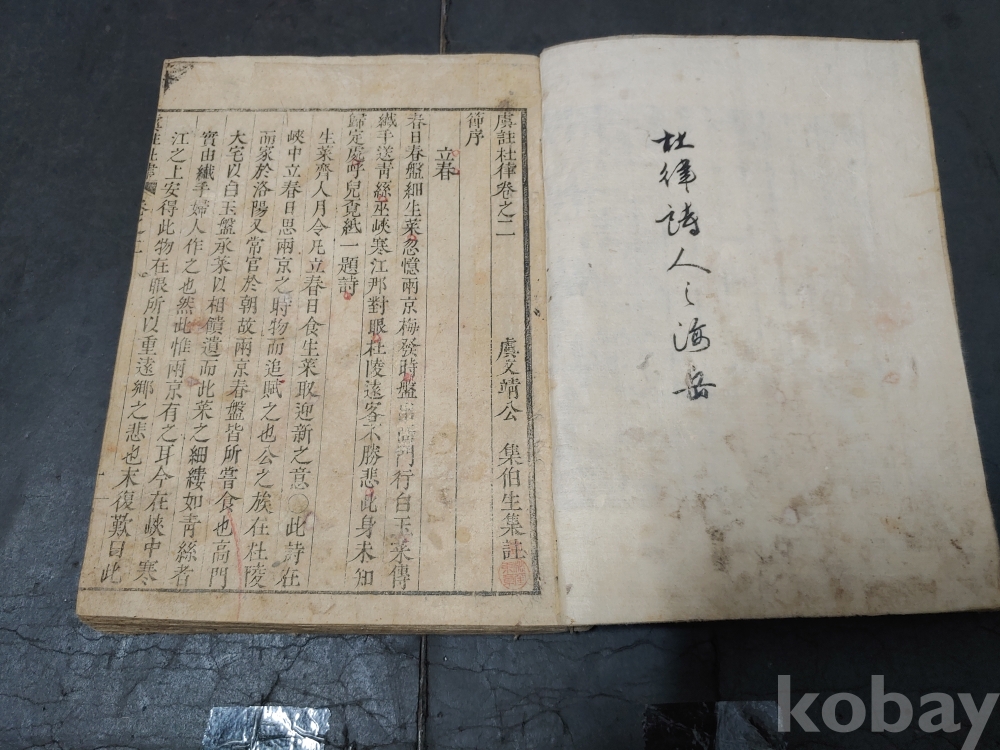 杜律詩人之海岳
虞註杜律卷之二
虞文靖公 集伯生集註
節序
立春
春日春盤細生菜忽憶兩京梅發時盤出高門行白玉菜傳
纖手送靑絲巫峽寒江那對眼杜陵遠客不勝悲此身未知
歸定處呼兒覓紙一題詩
生菜齊人月令凡立春日食生菜取迎新之意○此詩在
峽中立春日思兩京之時物而追賦之也公之族在杜陵
而家於洛陽又常官於朝故兩京春盤皆所嘗食也高門
大宅以白玉盤承菜以相饋遺而此菜之細縷如靑絲者
實由纖手婦人作之也然此惟兩京有之耳今在峽中寒
江之上安得此物在眼所以重遠鄕之悲也末復歎曰此
虞註杜律 卷之二
kobay